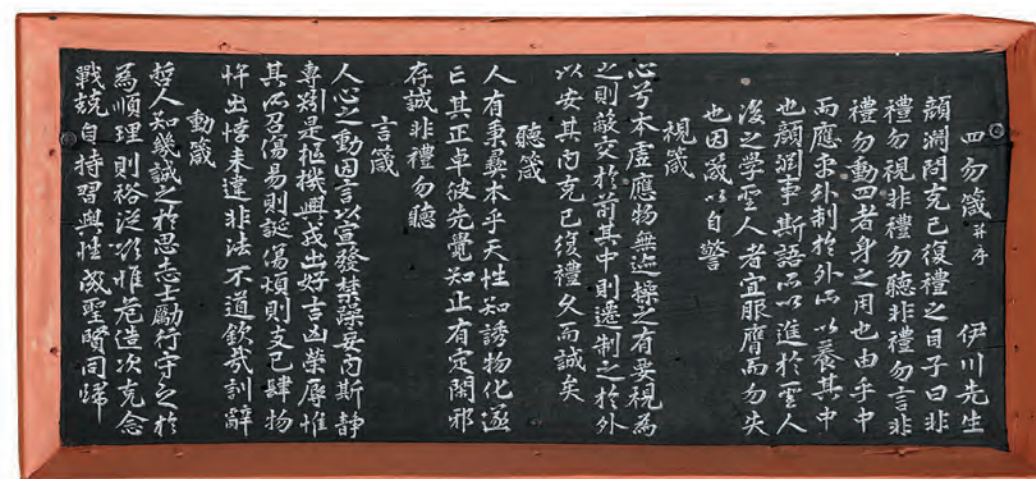 四勿箴 并序 伊川先生
顔淵問克己復禮之目子曰非
禮勿視非禮勿聽非禮勿言非
禮勿動四者身之用也由乎中
而應乎外制於外所以養其中
也顔淵事斯語所以進於聖人
後之学聖人者宜服膺而勿失
也因箴以自警
視箴
心兮本虛應物無迹操之有要視為
之則蔽交於前其中則遷制之於外
以安其内克己復禮久而誠矣
聽箴
人有秉彝本乎天性知誘物化遂
亡其正卓彼先覺知止有定閑邪
存誠非禮勿聽
言箴
人心之動因言以宣發禁躁妄内斯静
專矧是樞機興戎出好吉凶榮辱惟
其所召傷易則誕傷煩則支己肆物
忤出悖来違非法不道欽哉訓辭
動箴
哲人知幾誠之於思志士勵行守之於
為順理則裕從欲惟危造次克念
戰兢自持習與性成聖賢同歸